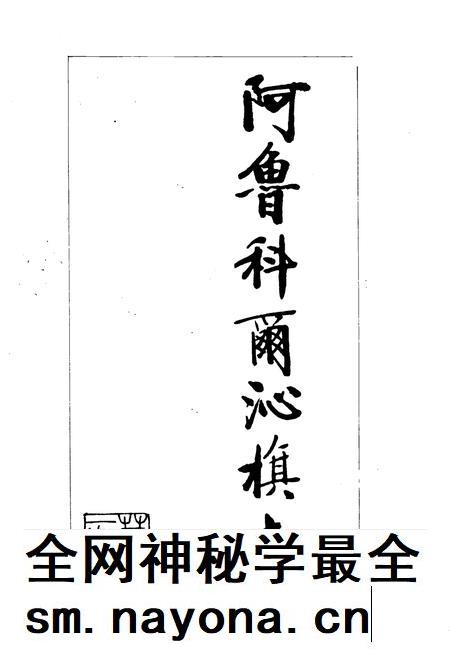 阿魯科爾沁旗
全网神秘学最全
sm.nayona.cn